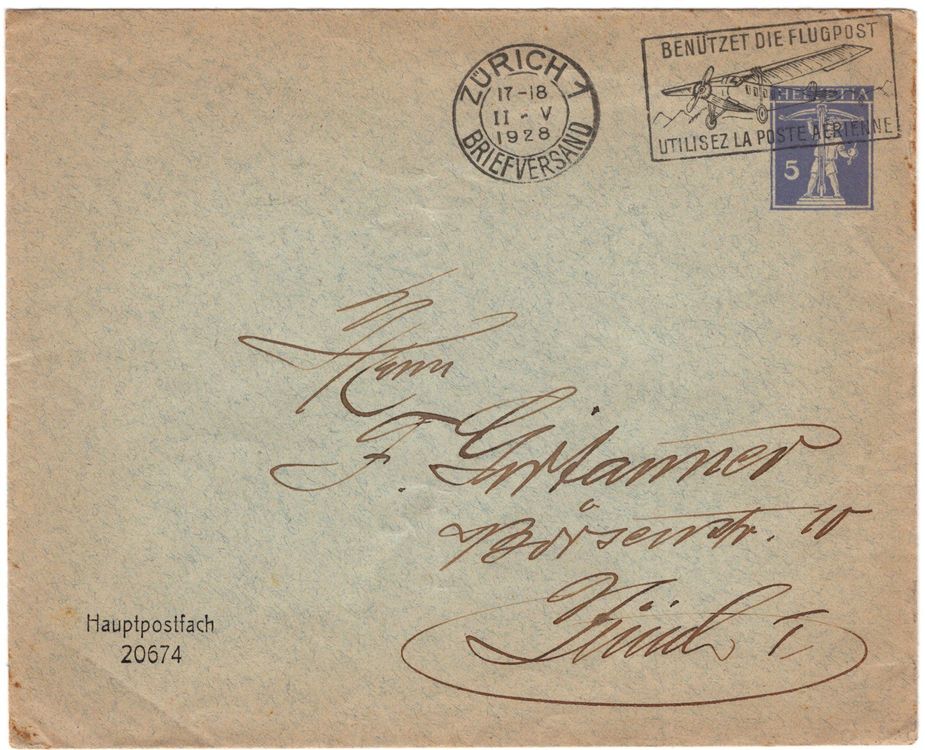 ZÜRICH 1
17-18
II - V
1928
BRIEFVERSAND
BENÜTZET DIE FLUGPOST
HELVETIA
UTILISEZ LA POSTE AÉRIENNE
5
Herrn
F. Girtanner
Börsenstr. 10
Zürich 1
Hauptpostfach
20674